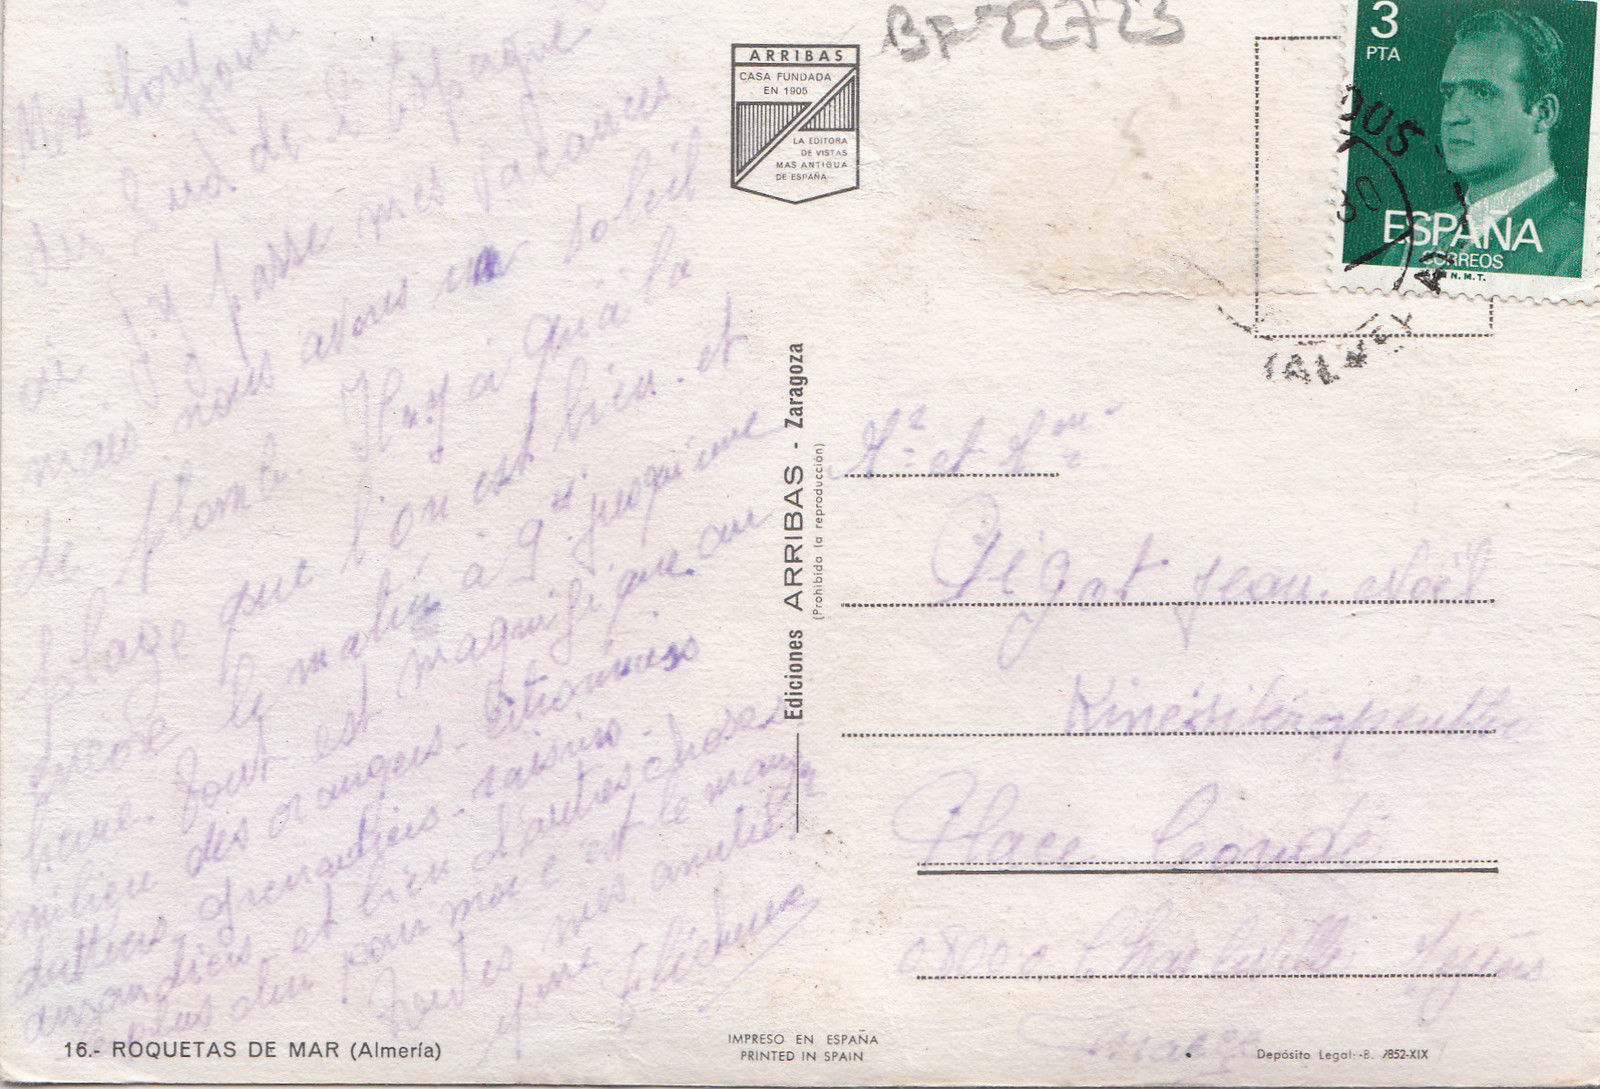 BF-22723
ARRIBAS
CASA FUNDADA
EN 1905
LA EDITORA
DE VISTAS
MAS ANTIGUA
DE ESPAÑA
3
PTA
ESPAÑA
CORREOS
F.N.M.T.
bonjour
du Sud de l'Espagne
passe mes vacances
mais nous avons un soleil
de plomb Il n.y a qu'à la
plage que l'on est bien. et
encore le matin à 9 jusqu'une
heure. Tout est magnifique au
milieu des orangers. citronniers
dattiers. grenadiers. raisins.
amandiers. et bien d'autres choses
pour moi c'est le
Toutes mes amitiés
Mr et Mme
Pigot Jean. Noël
Kinésitérapeute
Place
08000 Charleville Mezières
France
Ediciones ARRIBAS - Zaragoza
(Prohibida la reproducción)
16.- ROQUETAS DE MAR (Almería)
IMPRESO EN ESPAÑA
PRINTED IN SPAIN
Depósito Legal:-B. 7852-XIX